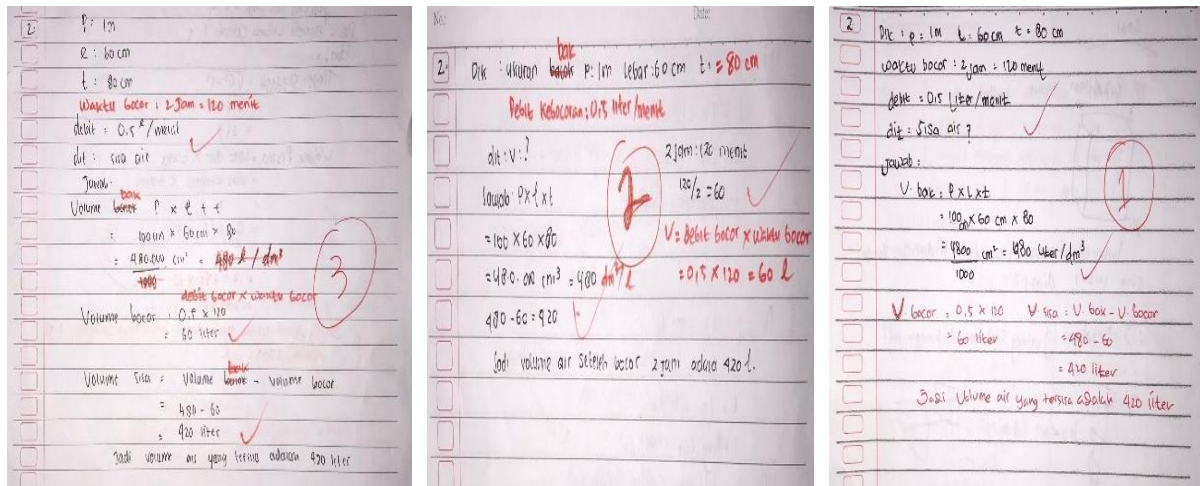 2.
P : 1m
l : 60 cm
t : 80 cm
Waktu bocor : 2 Jam = 120 menit
debit = 0.5 l/menit
dit : sisa air
Jawab :
bak
Volume P x l x t
= 100 cm x 60 cm x 80
= 480.000 cm³ = 480 l / dm³
1000
debit bocor x waktu bocor
Volume bocor : 0.5 x 120
= 60 liter
bak
Volume sisa = Volume - Volume bocor
= 480 - 60
= 420 liter
Jadi volume air yang adalah 420 liter
3
No:
Date:
bak
2. Dik : ukuran P: 1m lebar: 60 cm t: = 80 cm
Debit Kebocoran : 0,5 liter/menit
dit : V : ?
2 jam : 120 menit
Jawab : P x l x t
120/2 = 60
= 100 x 60 x 80
V = Debit bocor x waktu bocor
= 480.000 cm³ = 480 dm³/l
= 0,5 x 120 = 60 l
480 - 60 = 420
Jadi volume air setelah bocor 2 jam 420 l.
2
2 Dik : p = 1m l = 60 cm t = 80 cm
waktu bocor : 2 jam = 120 menit
debit = 0,5 Liter/menit
dit = Sisa air ?
Jawab :
V. bak : P x L x t
= 100 cm x 60 cm x 80
= 4800 cm² = 480 liter/dm³
1000
V. bocor : 0,5 x 120 V. sisa : V. bak - V. bocor
= 60 liter = 480 - 60
= 420 liter
Jadi Volume air yang tersisa adalah 420 liter
1